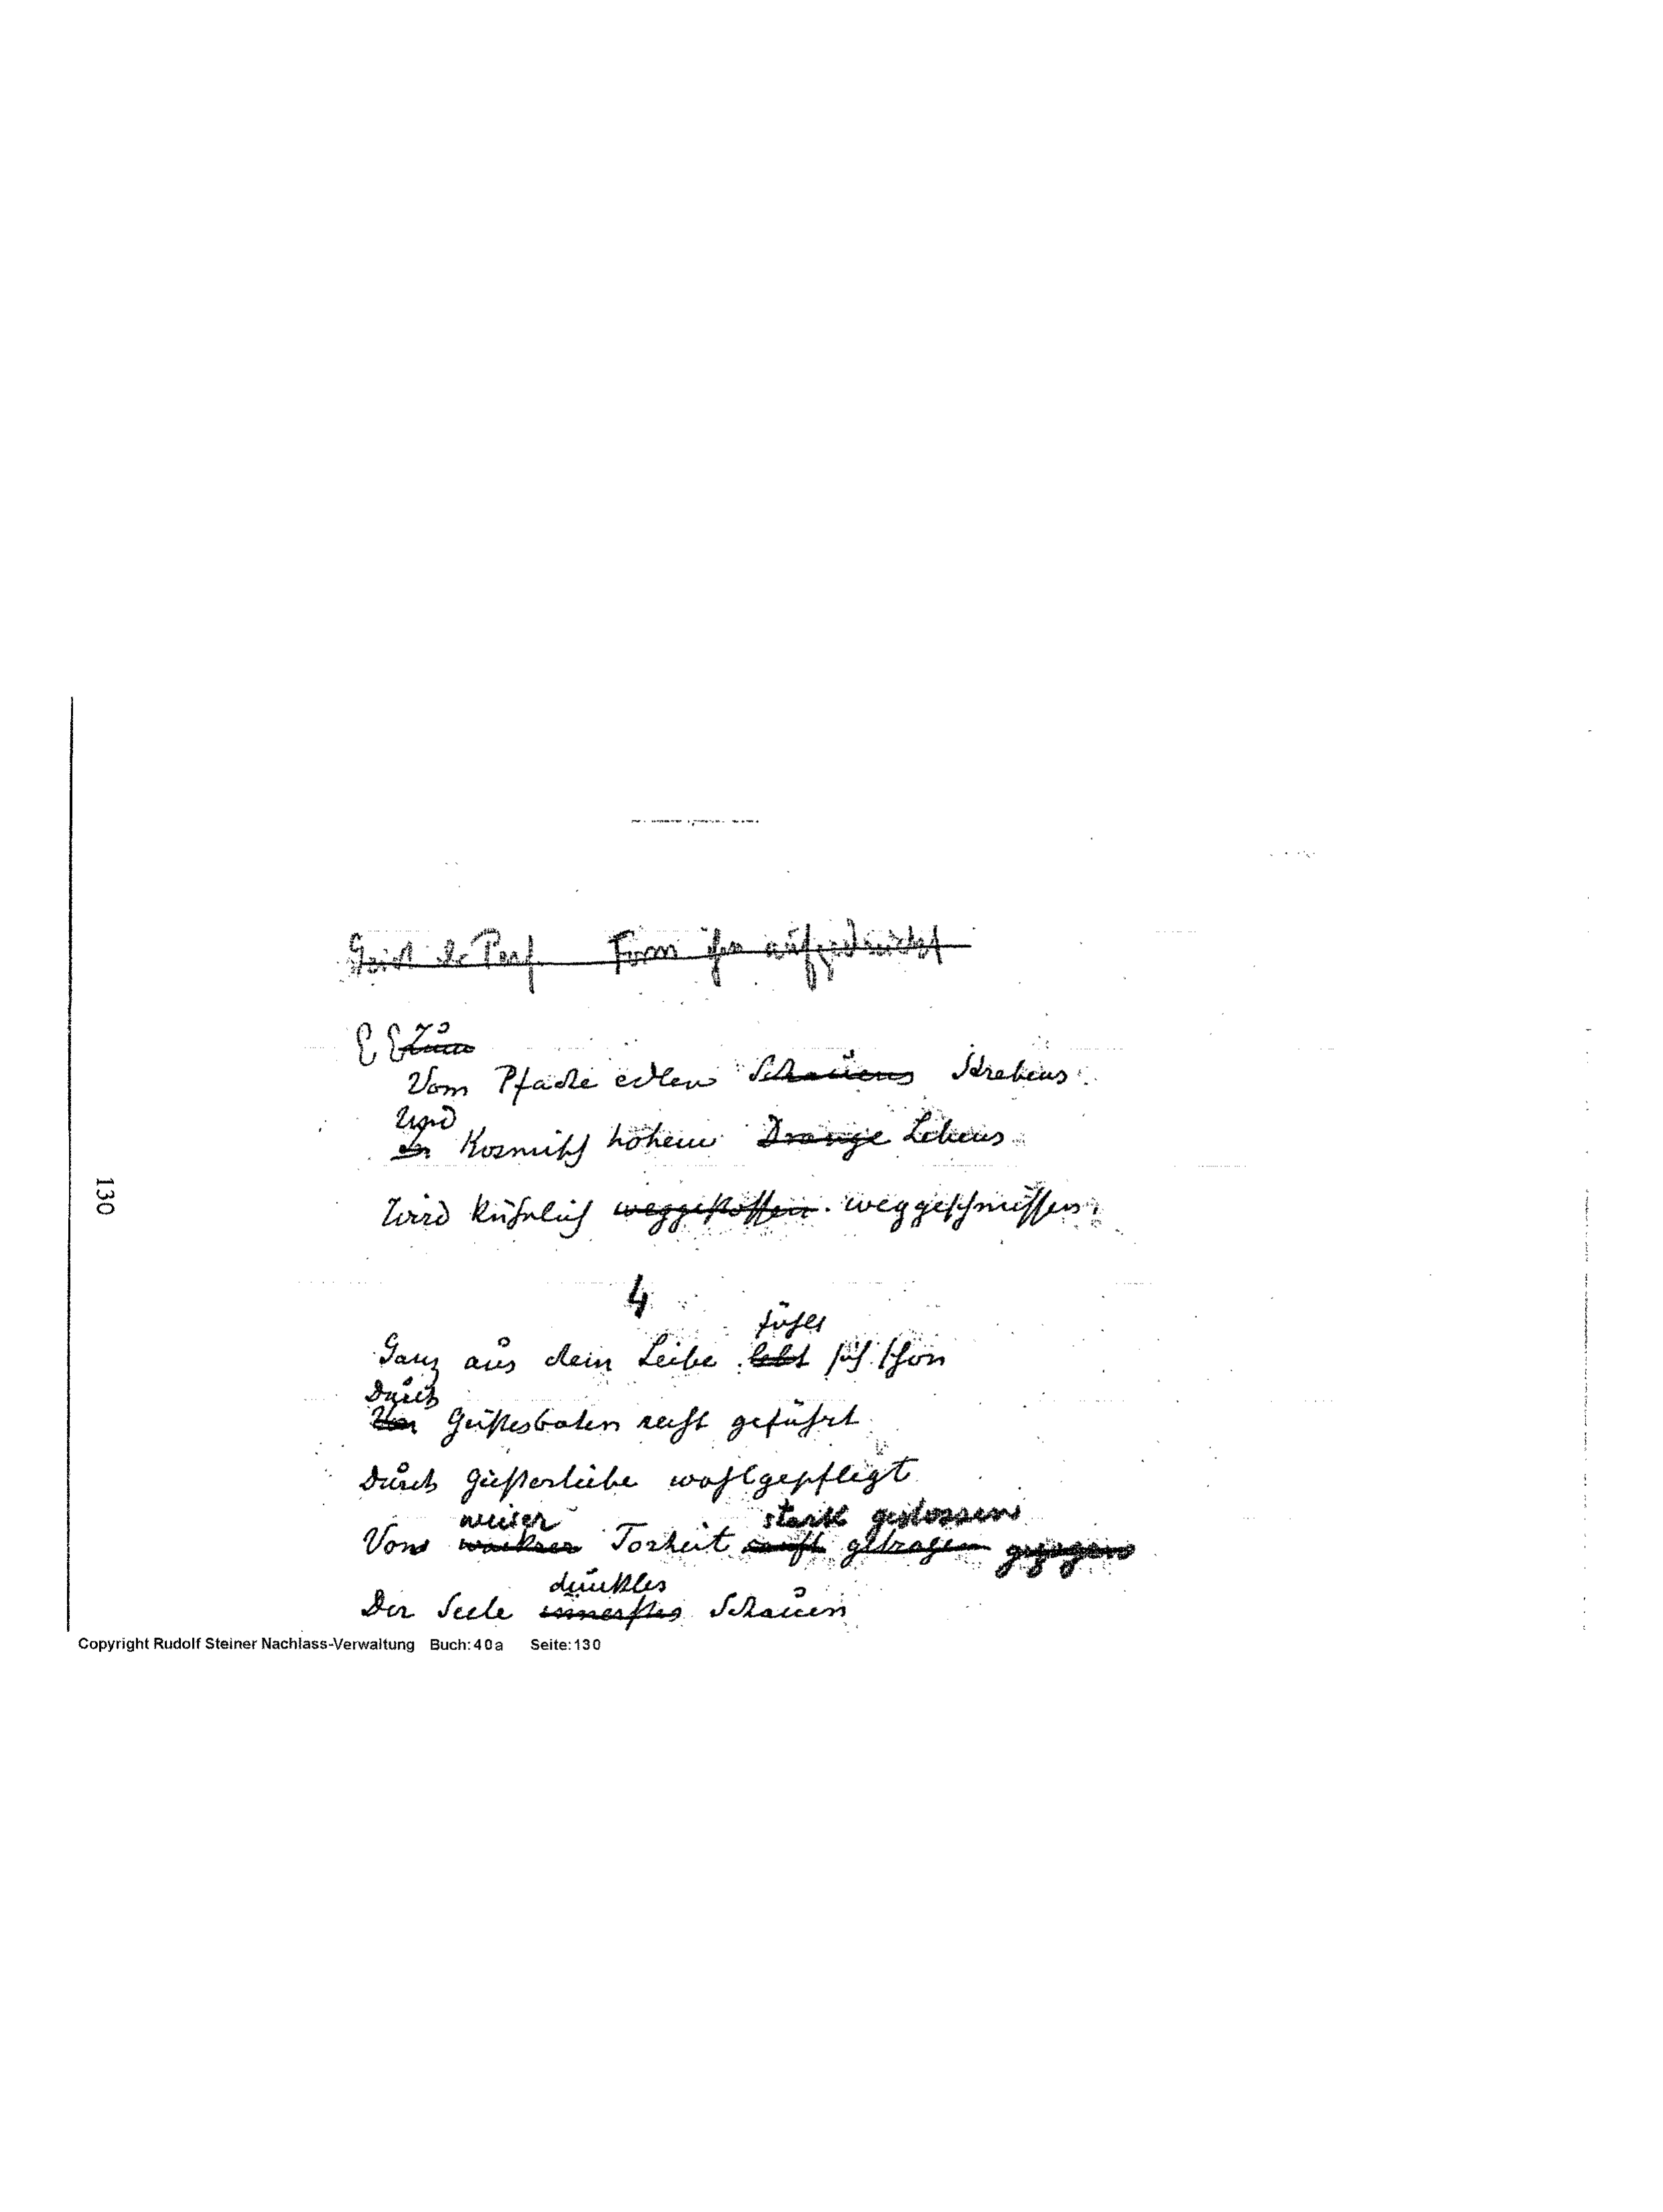 Geist d. Form ihr aufgedrückt
Zum
Vom Pfade edlen Schauens Strebens
Und
In Kosmisch hohem Drange Lebens
Wird kühnlich weggestossen. weggeschmissen.
130
4
fühlt
Ganz aus dem Leibe lebt sich schon
Durch
Von Geistesboten recht geführt
Durch Geisterliebe wohlgepflegt
weiser stark gestossen
Von wackrer Torheit sanft getragen gezogen
dunkles
Der Seele innerstes Schauen
Copyright Rudolf Steiner Nachlass-Verwaltung Buch:40a Seite:130